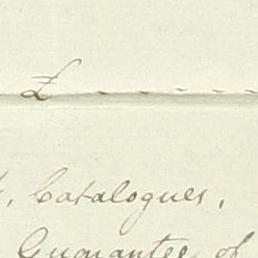 £ - - - -
, Catalogues,
Guarantee of